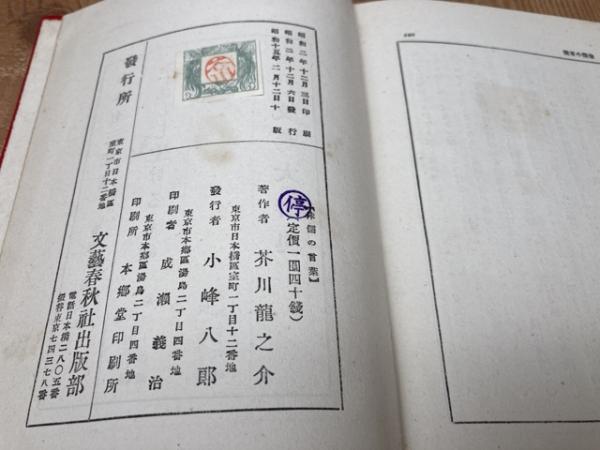 昭和二年十二月三日印刷
昭和二年十二月六日發行
昭和十五年二月十二日十版
【侏儒の言葉】
停
(定價一圓四十錢)
著作者 芥川龍之介
東京市日本橋區室町一丁目十二番地
發行者 小峰八郎
東京市本郷區湯島二丁目四番地
印刷者 成瀬義治
東京市本郷區湯島二丁目四番地
印刷所 本郷堂印刷所
發行所
東京市日本橋區
室町一丁目十二番地
文藝春秋社出版部
電話日本橋二八〇五番
振替東京七四三七八番